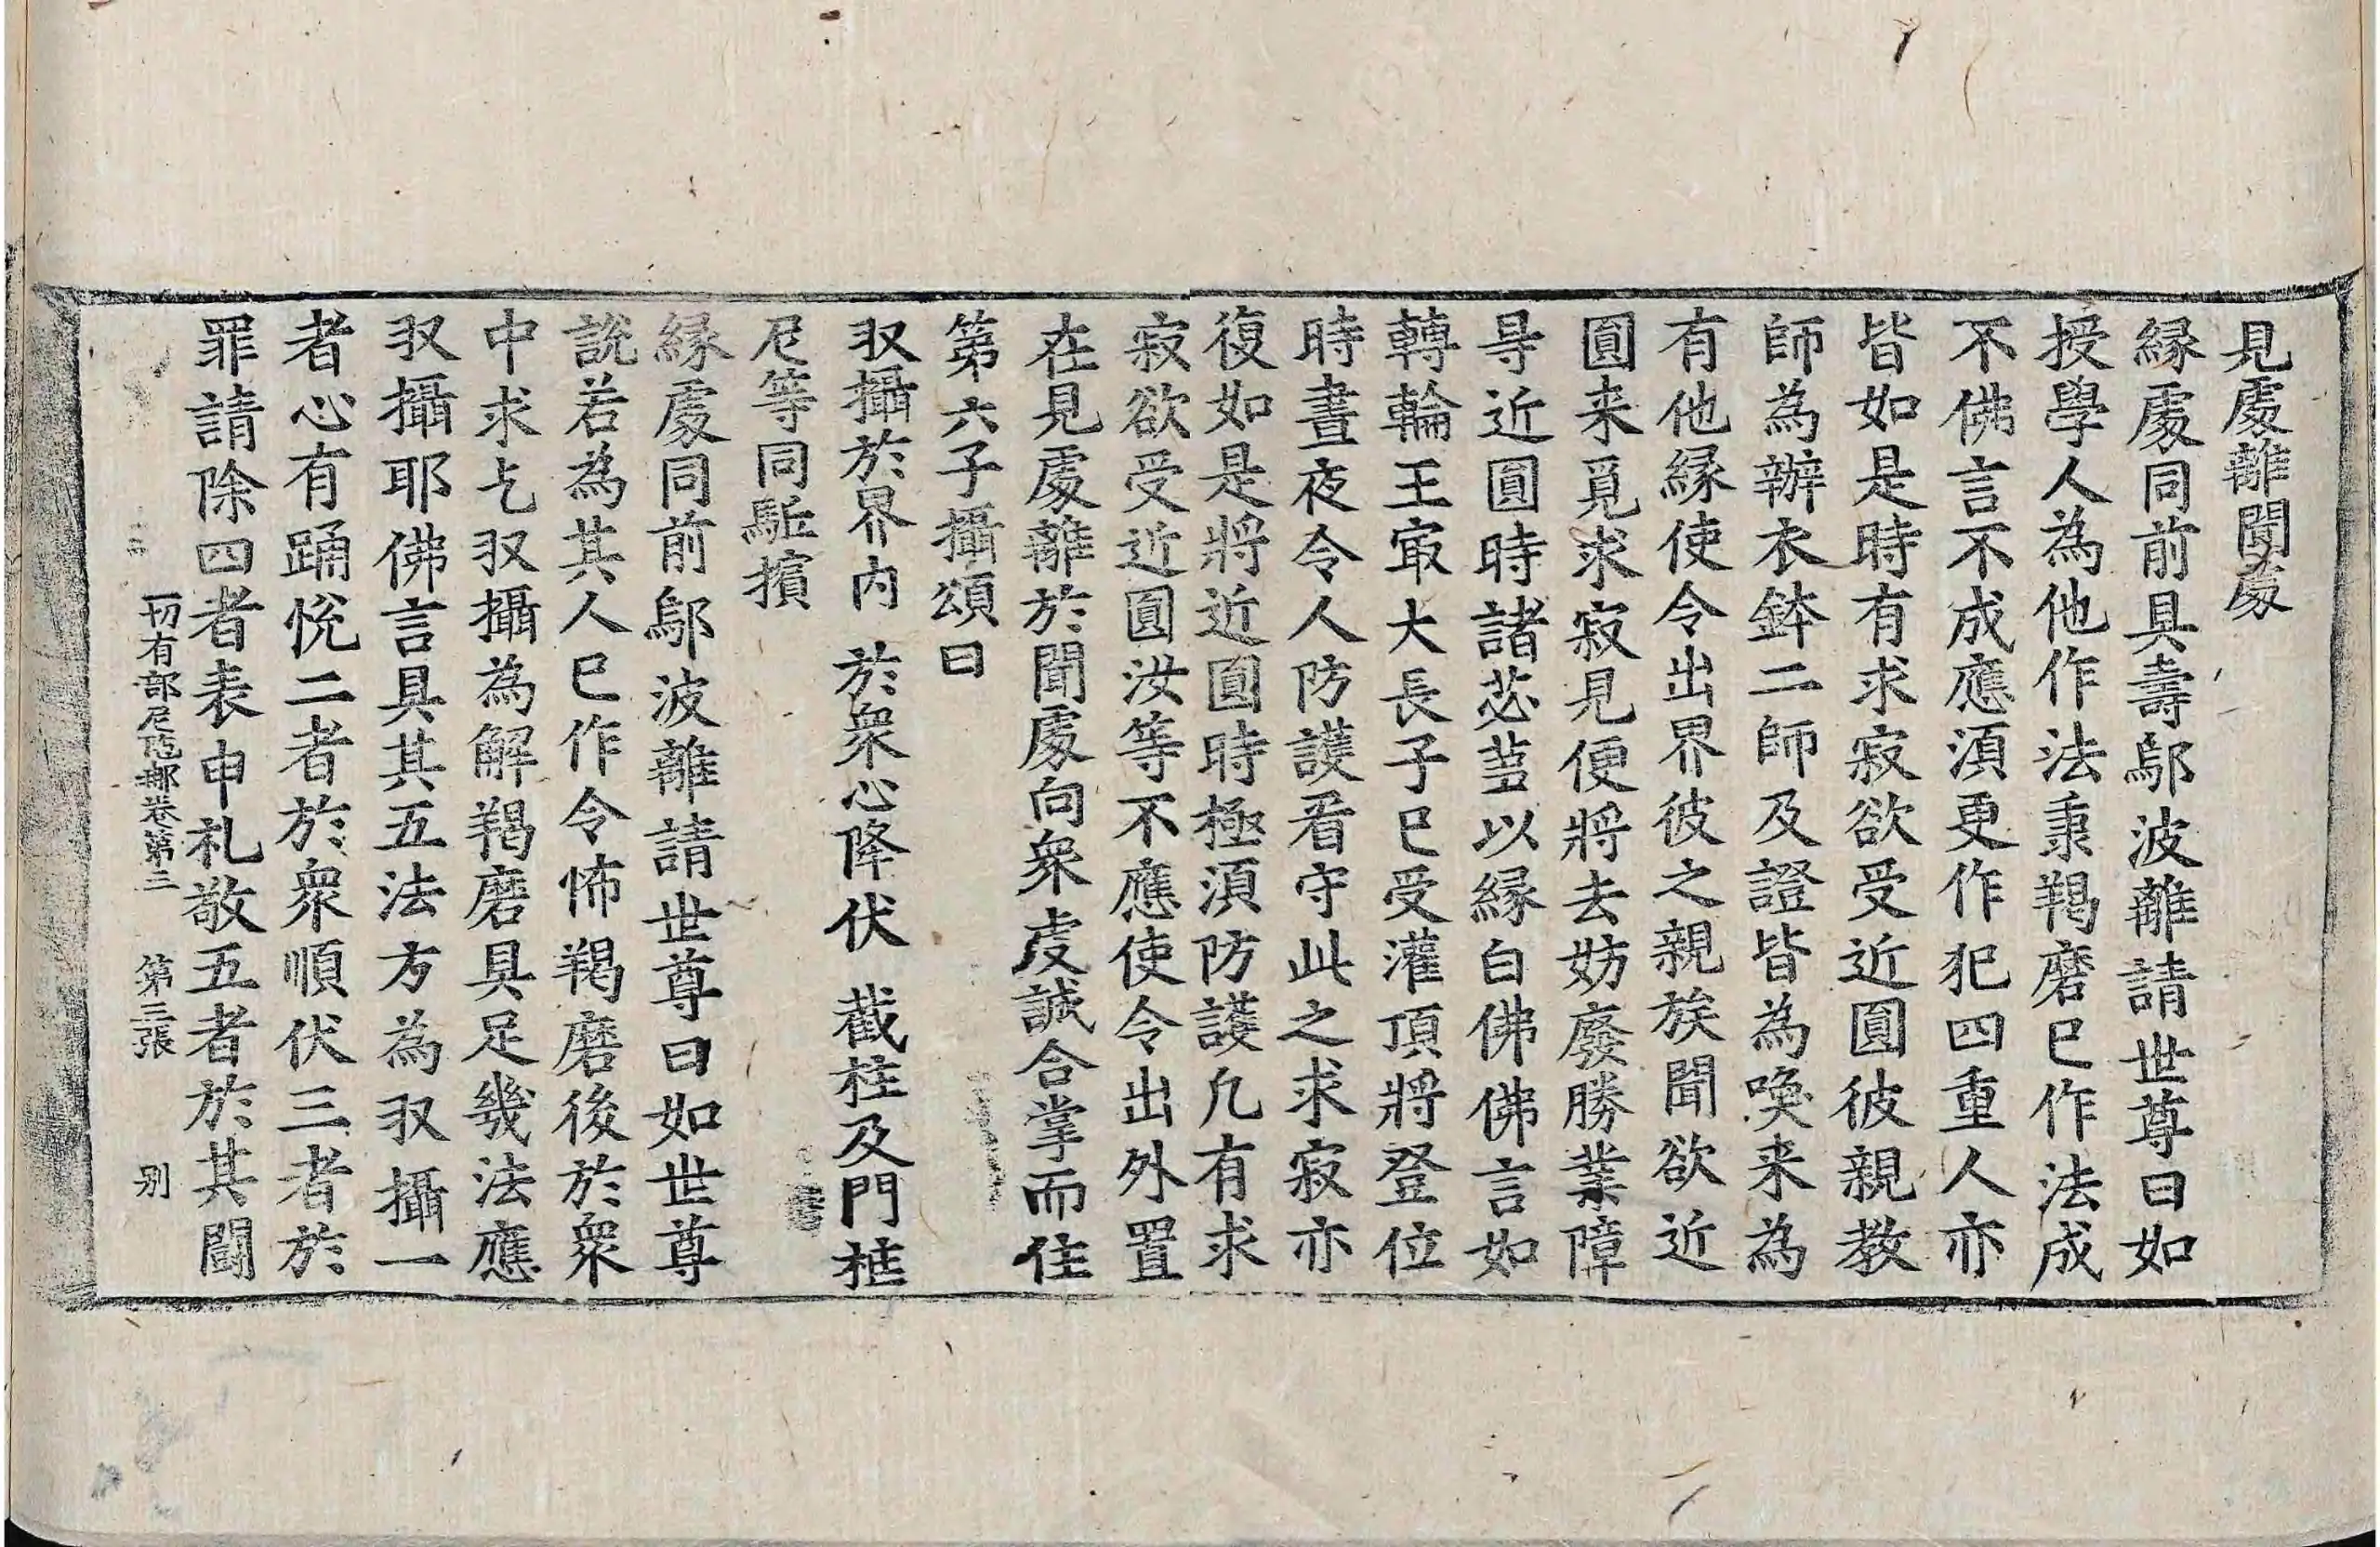 見處離聞處
緣處同前具壽鄔波離請世尊曰如
授學人為他作法秉羯磨已作法成
不佛言不成應須更作犯四重人亦
皆如是時有求寂欲受近圓彼親教
師為辦衣鉢二師及證皆為喚来為
有他緣使令出界彼之親族聞欲近
圓来覓求寂見便將去妨廢勝業障
㝵近圓時諸苾芻以緣白佛佛言如
轉輪王㝡大長子已受灌頂將登位
時晝夜令人防護看守此之求寂亦
復如是將近圓時極須防護凡有求
寂欲受近圓汝等不應使令出外置
在見處離於聞處向衆虔誠合掌而住
第六子攝頌曰
収攝於界内　於衆心降伏　截柱及門框
尼等同駈擯
緣處同前鄔波離請世尊曰如世尊
說若為其人已作令怖羯磨後於衆
中求乞収攝為解羯磨具足幾法應
収攝耶佛言具其五法方為収攝一
者心有踊悅二者於衆順伏三者於
罪請除四者表申礼敬五者於其鬪
一切有部尼陁那卷第三　第三張　别